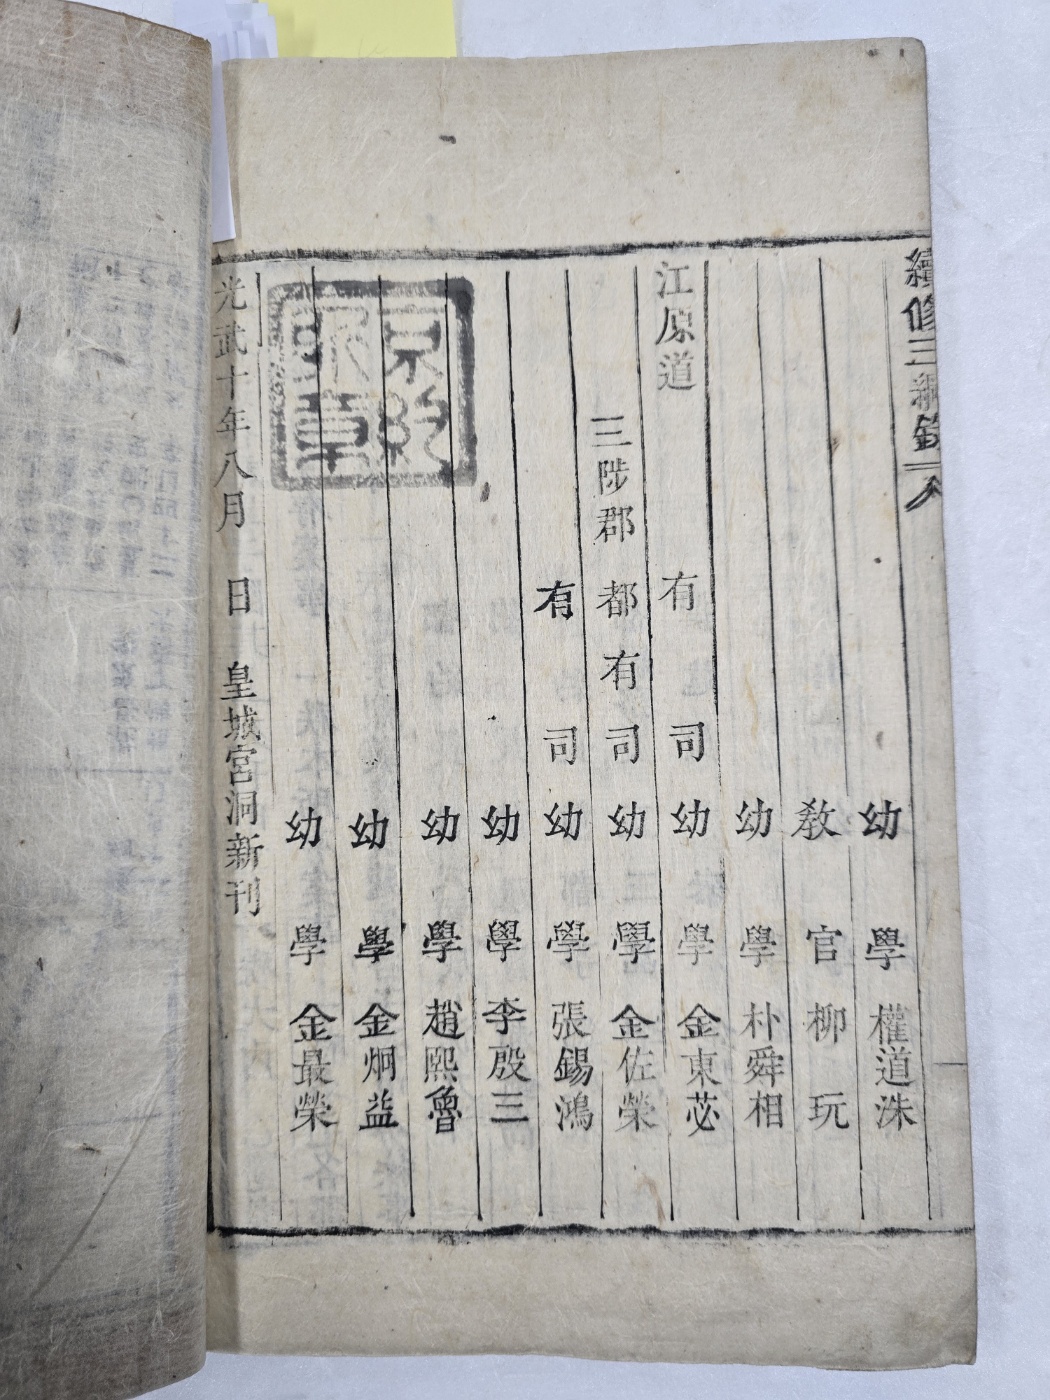 續修三綱錄
幼學 權道洙
教官 柳玩
幼學 朴舜相
江原道 有司 幼學 金東苾
三陟郡 都有司 幼學 金佐榮
有司 幼學 張錫鴻
幼學 李殷三
幼學 趙熙魯
幼學 金炯益
幼學 金最榮
光武十年八月 日 皇城宮洞新刊
京約
章